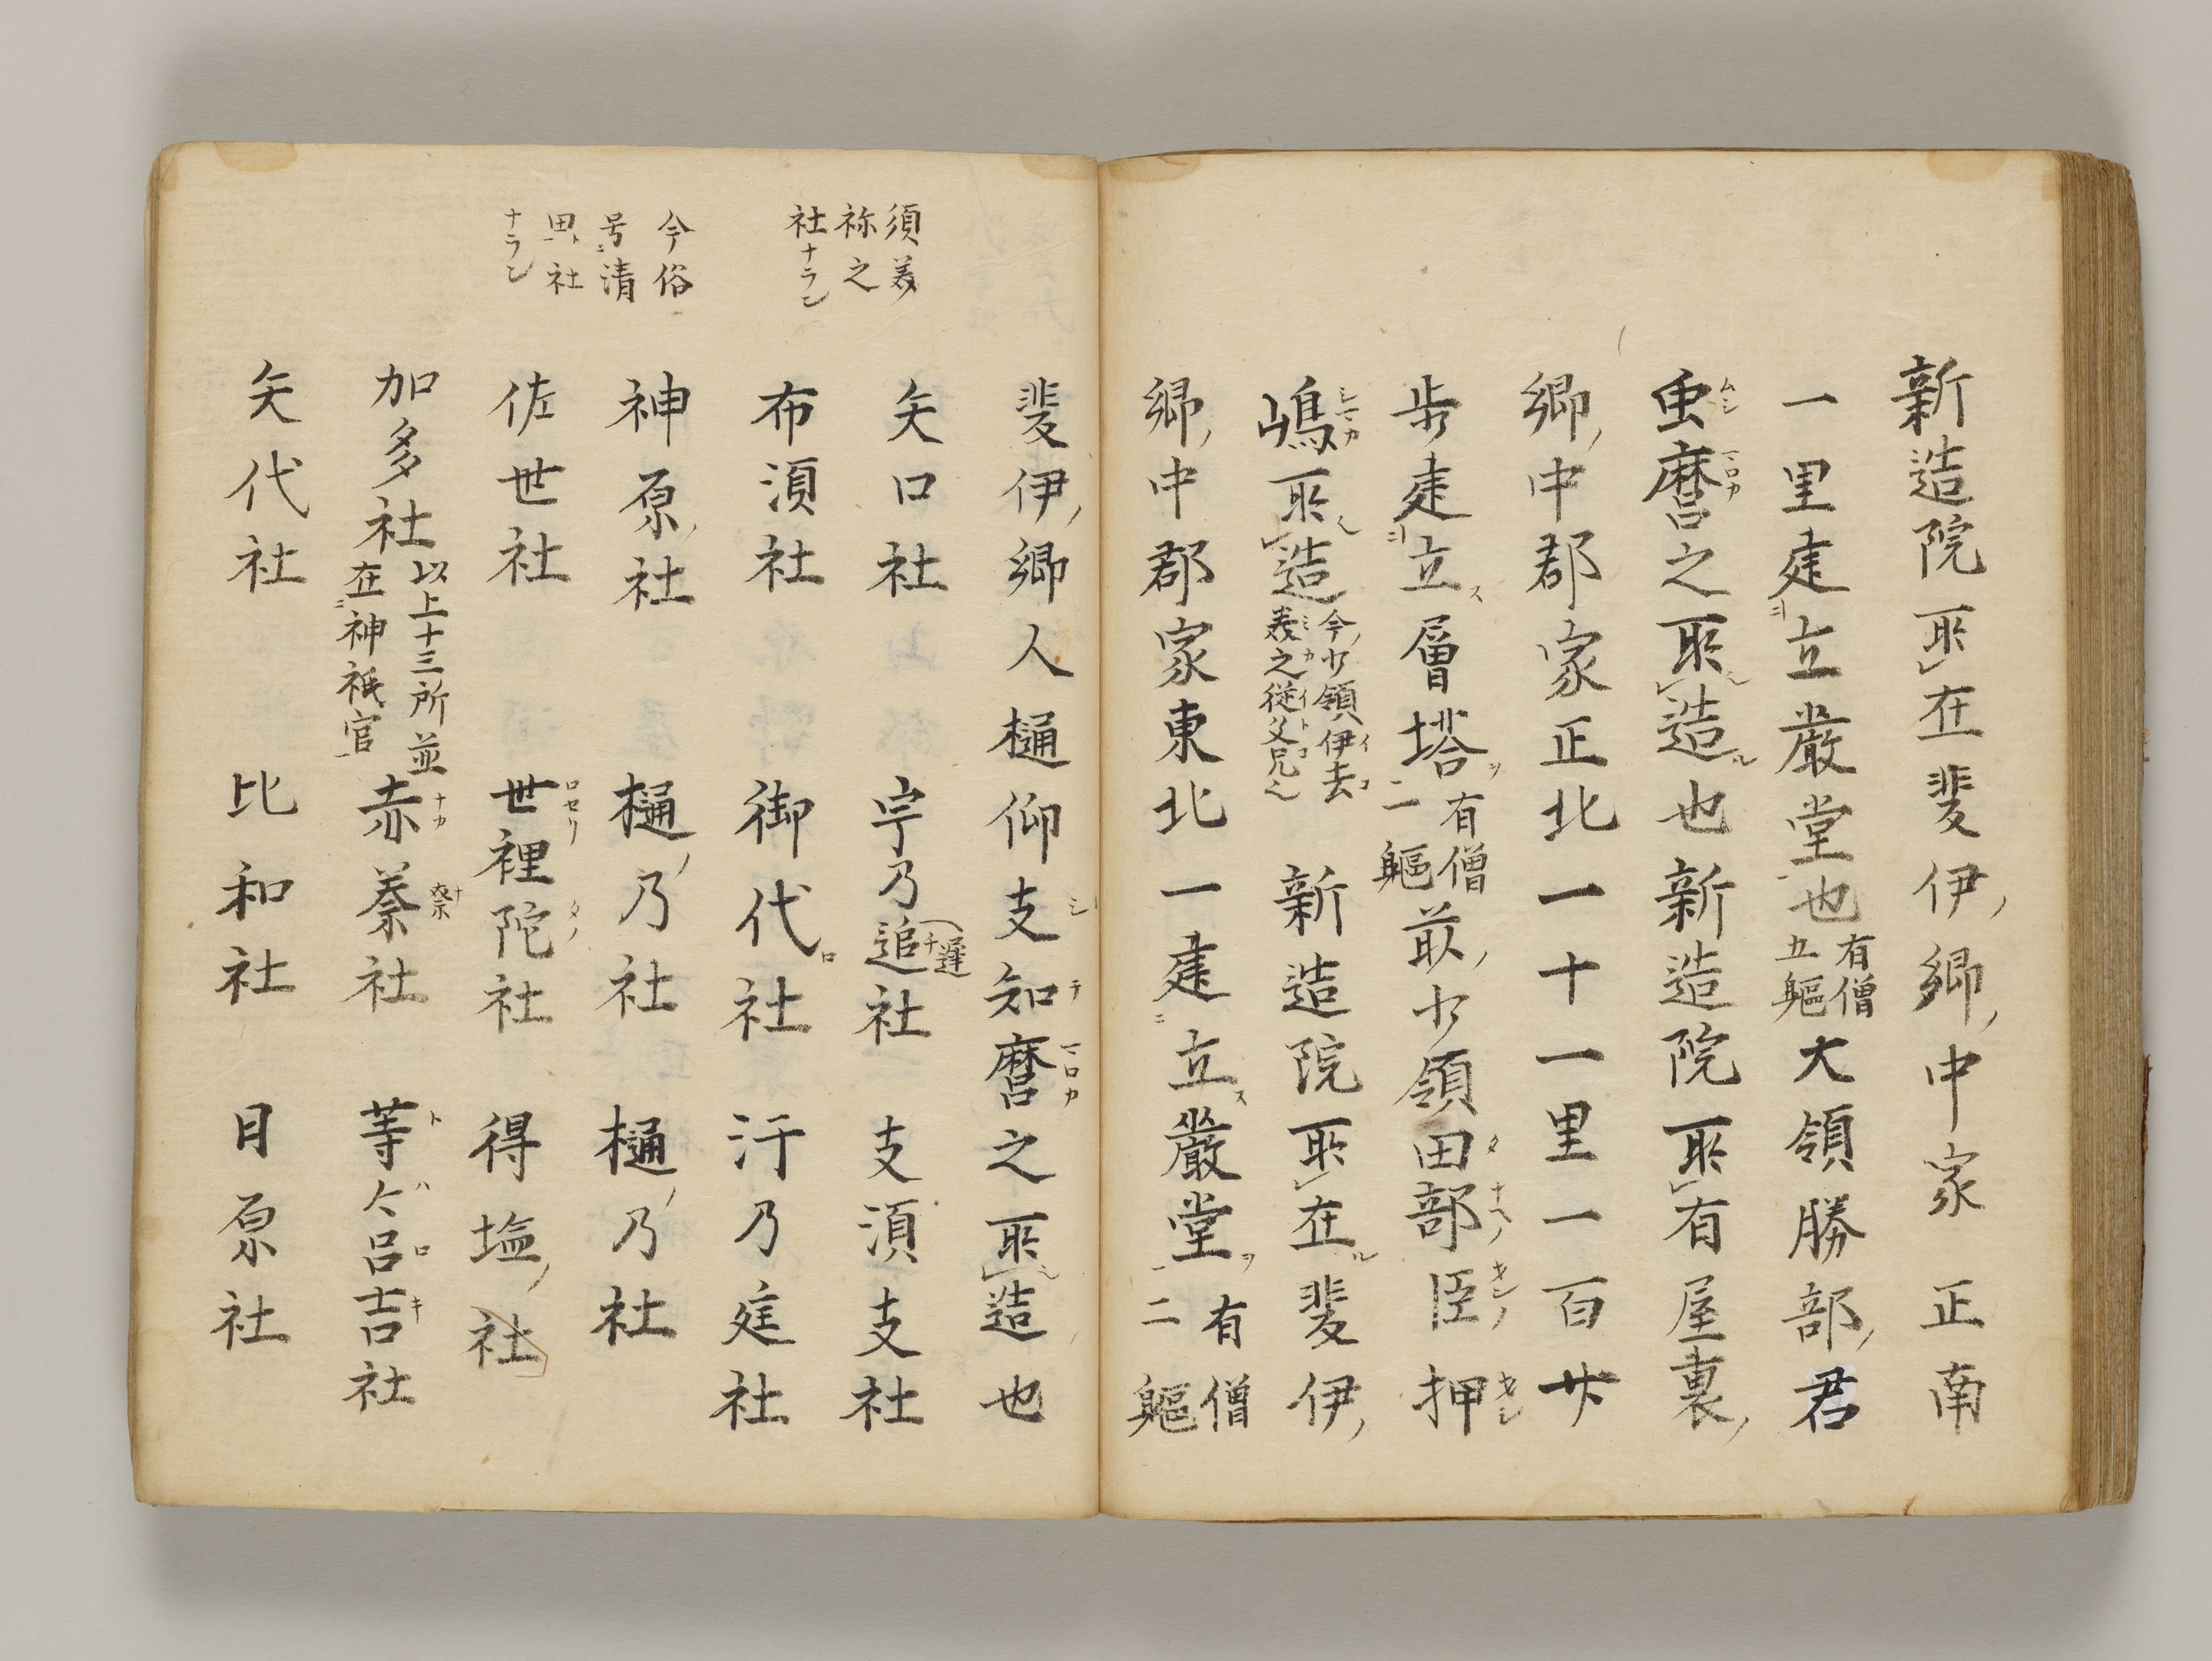 新造院所在斐伊郷中家正南
一里建立厳堂也有僧五軀大領勝部君
虫麿之所造也新造院所有屋裏
郷中郡家正北一十一里一百廿
歩建立層塔有僧二軀前少領田部臣押
嶋所造今少領伊去美之従父兄也新造院所在斐伊
郷中郡家東北一建立巌堂有僧二軀
斐伊郷人樋仰支知麿之所造也
須美祢之社ナラン
矢口社 宇乃追社 支須支社
布須社 御代社 汙乃庭社
今俗号清田社ナラン
神原社 樋乃社 樋乃社
佐世社 世裡陀社 得塩社
加多社以上十三所並在神祇官 赤蓁社 等仒呂吉社
矢代社 比和社 日原社